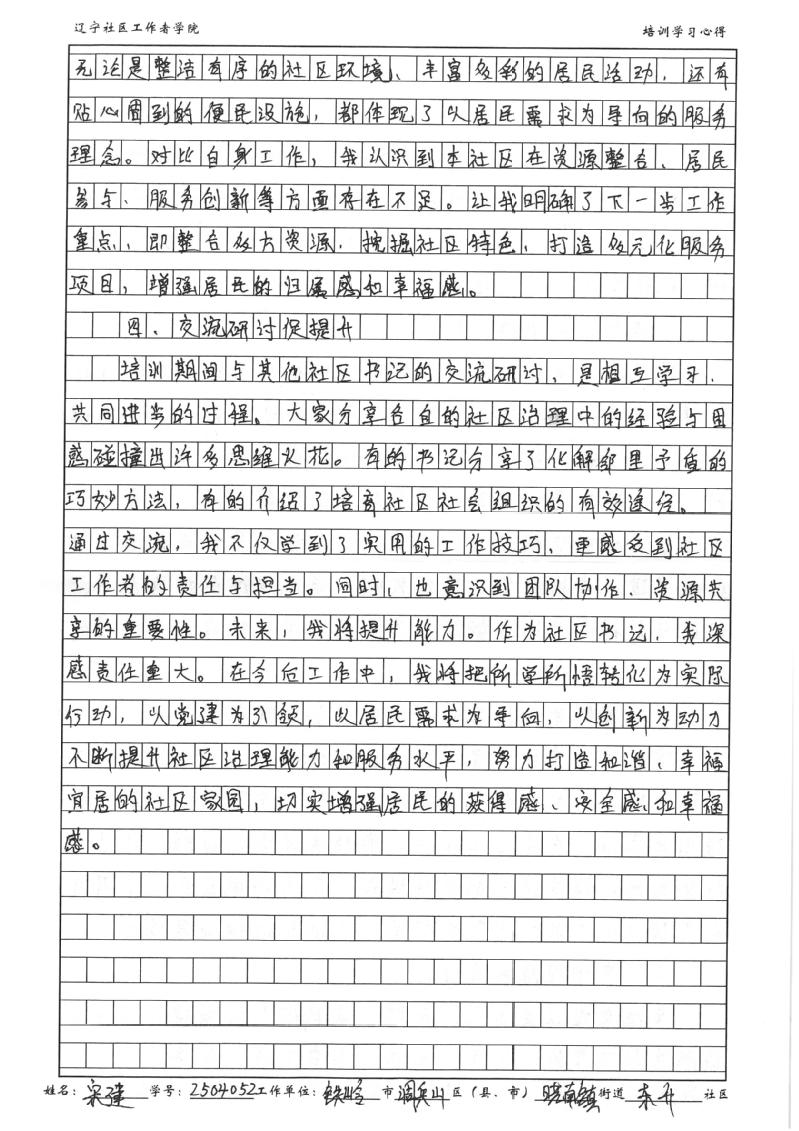 辽宁社区工作者学院 培训学习心得
无论是整洁有序的社区环境、丰富多彩的居民活动，还有
贴心周到的便民设施，都体现了以居民需求为导向的服务
理念。对比自身工作，我认识到本社区在资源整合、居民
参与、服务创新等方面存在不足。让我明确了下一步工作
重点，即整合多方资源，挖掘社区特色，打造多元化服务
项目，增强居民的归属感和幸福感。
四、交流研讨促提升
培训期间与其他社区书记的交流研讨，是相互学习、
共同进步的过程。大家分享各自的社区治理中的经验与困
惑碰撞出许多思维火花。有的书记分享了化解邻里矛盾的
巧妙方法，有的介绍了培育社区社会组织的有效途径。
通过交流，我不仅学到了实用的工作技巧，更感受到社区
工作者的责任与担当。同时，也意识到团队协作、资源共
享的重要性。未来，我将提升能力。作为社区书记，我深
感责任重大。在今后工作中，我将把所学所悟转化为实际
行动，以党建为引领，以居民需求为导向，以创新为动力
不断提升社区治理能力和服务水平，努力打造和谐、幸福
宜居的社区家园，切实增强居民的获得感、安全感和幸福
感。
姓名：宋建 学号：2504052 工作单位：铁岭 市 调兵山 区（县、市） 晓南镇 街道 东升 社区